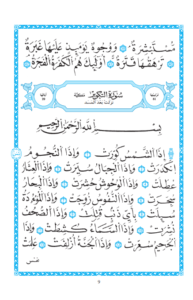 مُّسْتَبْشِرَةٌ ۝ وَوُجُوهٌ يَوْمَئِذٍ عَلَيْهَا غَبَرَةٌ
۝ تَرْهَقُهَا قَتَرَةٌ ۝ أُولَٰئِكَ هُمُ الْكَفَرَةُ الْفَجَرَةُ ۝
سُورَةُ التَّكْوِيرِ
بِسْمِ اللَّهِ الرَّحْمَٰنِ الرَّحِيمِ
إِذَا الشَّمْسُ كُوِّرَتْ ۝ وَإِذَا النُّجُومُ
انكَدَرَتْ ۝ وَإِذَا الْجِبَالُ سُيِّرَتْ ۝ وَإِذَا الْعِشَارُ
عُطِّلَتْ ۝ وَإِذَا الْوُحُوشُ حُشِرَتْ ۝ وَإِذَا الْبِحَارُ
سُجِّرَتْ ۝ وَإِذَا النُّفُوسُ زُوِّجَتْ ۝ وَإِذَا الْمَوْءُودَةُ
سُئِلَتْ ۝ بِأَيِّ ذَنبٍ قُتِلَتْ ۝ وَإِذَا الصُّحُفُ
نُشِرَتْ ۝ وَإِذَا السَّمَاءُ كُشِطَتْ ۝ وَإِذَا
الْجَحِيمُ سُعِّرَتْ ۝ وَإِذَا الْجَنَّةُ أُزْلِفَتْ ۝ عَلِمَتْ
نَفْسٌ